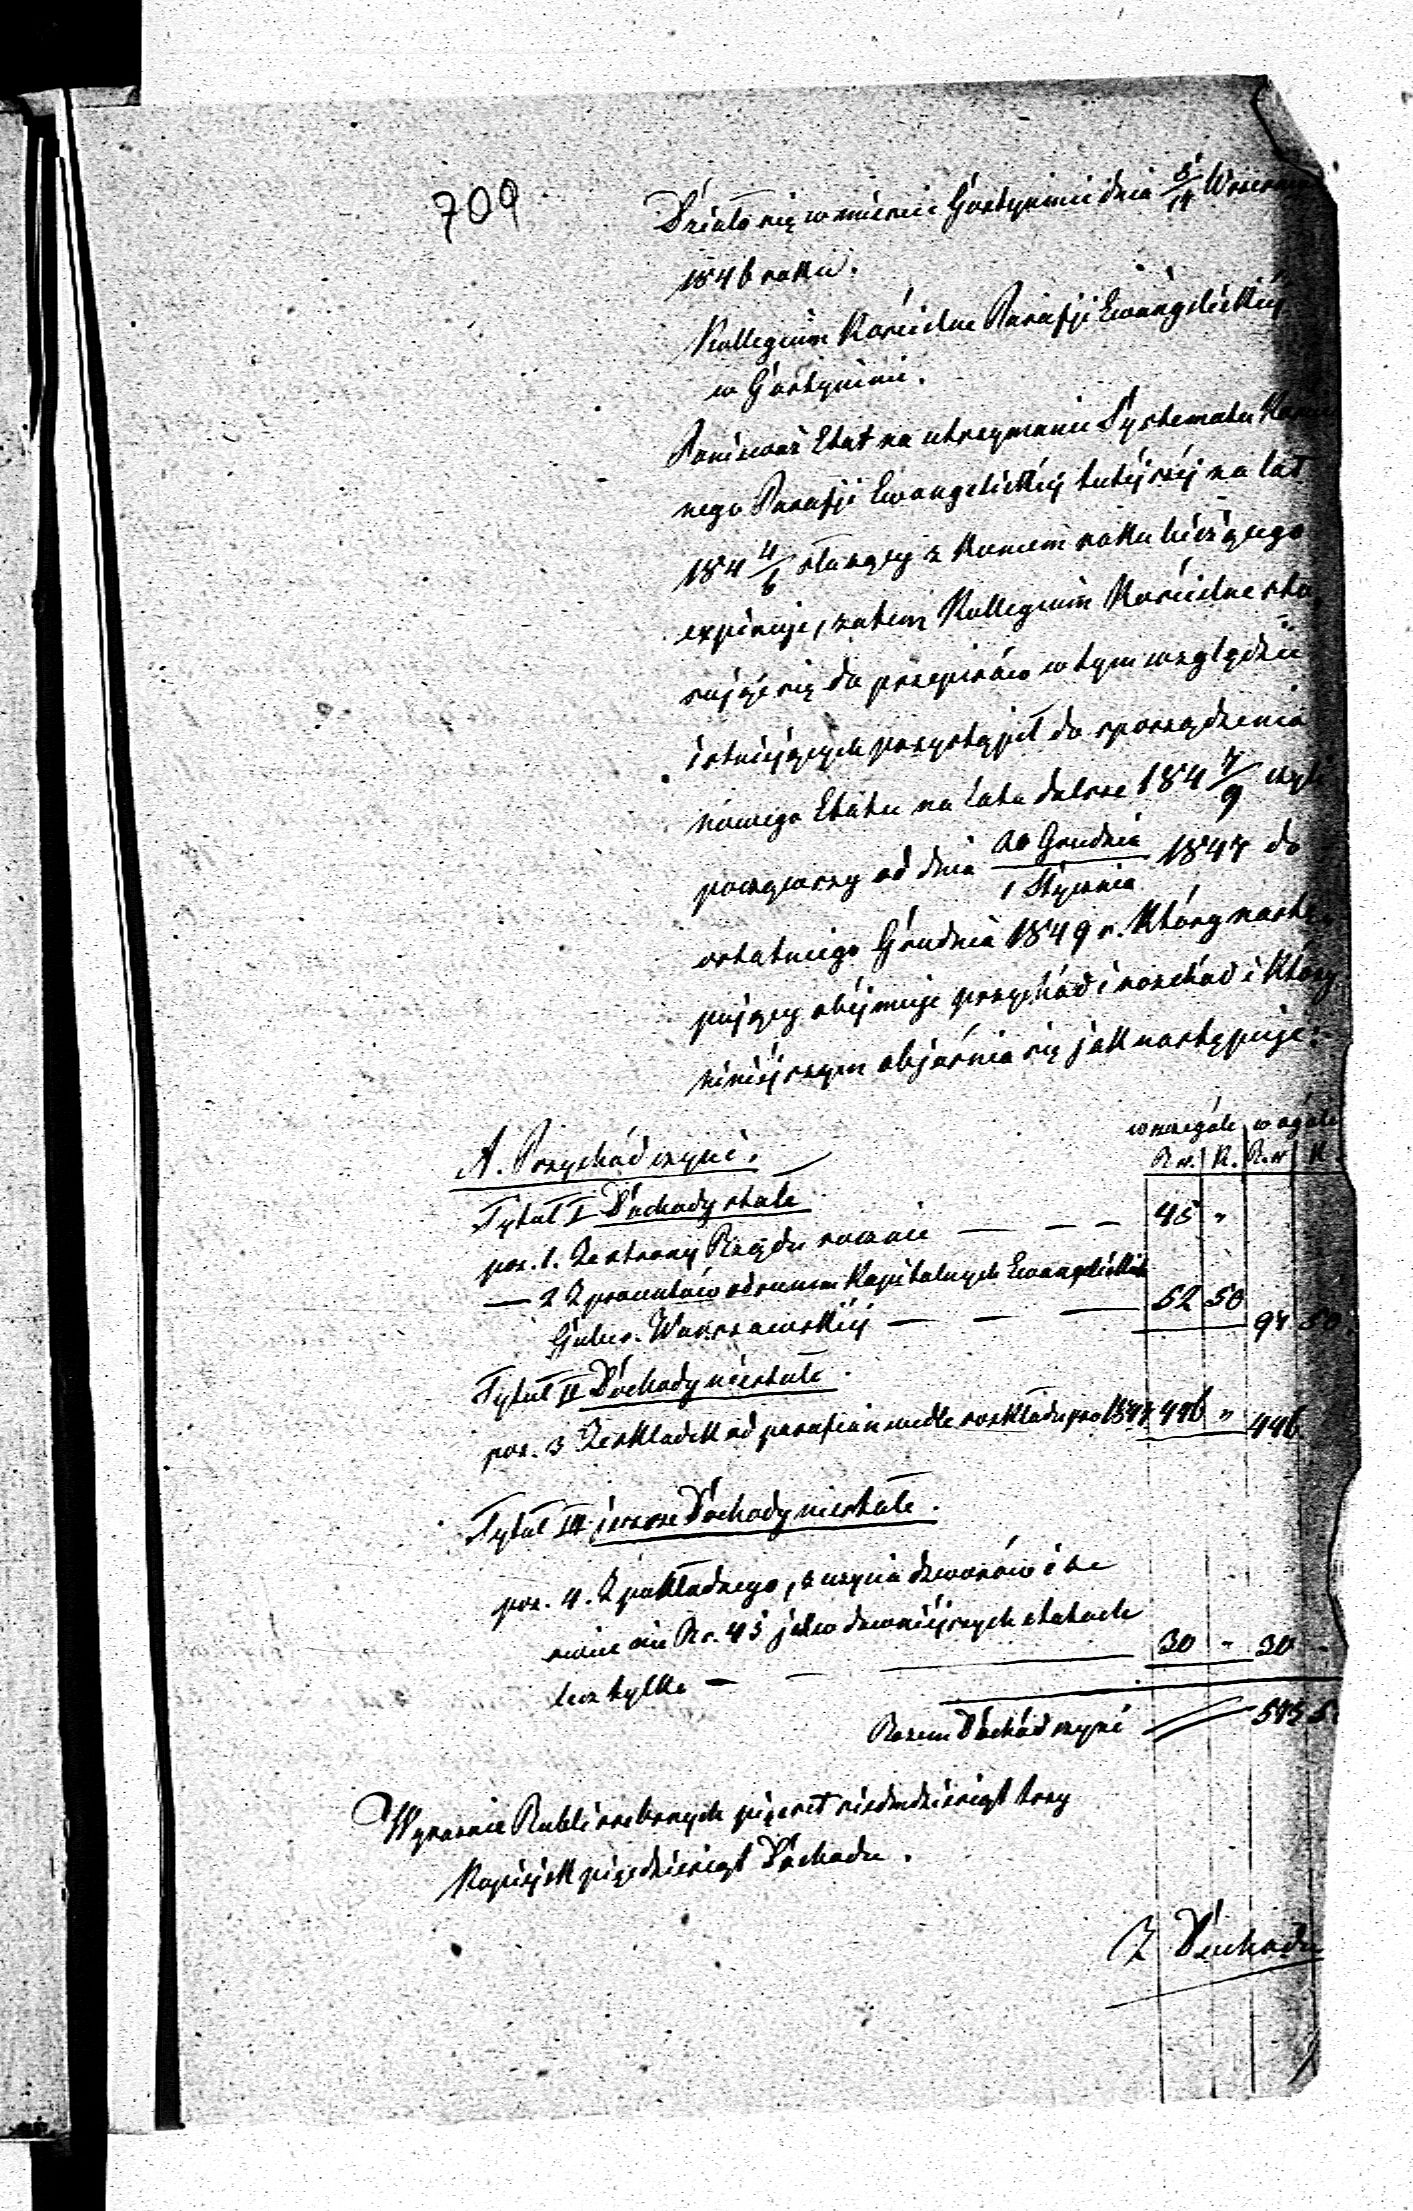 709
Działo się w mieście Gostyninie dnia 5/17 Wrześni
1846 roku.
Kollegium Kościelne Parafji Ewangelickiéj
w Gostyninie.
Ponieważ Etat na utrzymanie Systematu Kościel
nego Parafji Ewangelickiéj tutéjszéj na lat
184 4/6 służący z końcem roku bieżącego
expiruje, zatem Kollegium Kościelne sto
sując się do przepisów w tym względzie
istniejących przystąpił do sporządzenia
nowego Etatu na lata dalsze 184 7/9 czyli
począwszy od dnia 20 Grudnia / 1 Stycznia 1847 do
ostatniego Grudnia 1849 r. Który nastę
pujący obéjmuje przychód i rozchód i Który
niniéjszym objaśnia się jak następuje:
w szczególe w ogóle
A. Przychód czyni. R.s. K. R.s. K.
Tytuł I Dochody stałe
poz. 1. Ze strony Rządu rocznie — — — 45 "
— 2 Z procentów od summ Kapitalnych Ewangelickich
Guber. Warszawskiéj — — — 52 50 97 50
Tytuł II Dochody niestałe.
poz. 3 Ze składek od parafian wedle rozkładu pro 1847 446 " 446
Tytuł III jeszcze Dochody niestałe.
poz. 4. Z pokładnego, z użycia dzwonów i ze
nie Rs. 45 jak w dawniéjszych etatach
lecz tylko — — — 30 " 30 "
Razem Dochód czyni 573 5
Wyraźnie Rubli srebrnych pięćset siedmdziesiąt trzy
Kopiéjek pięćdziesiąt Dochodu.
Z Dochodu